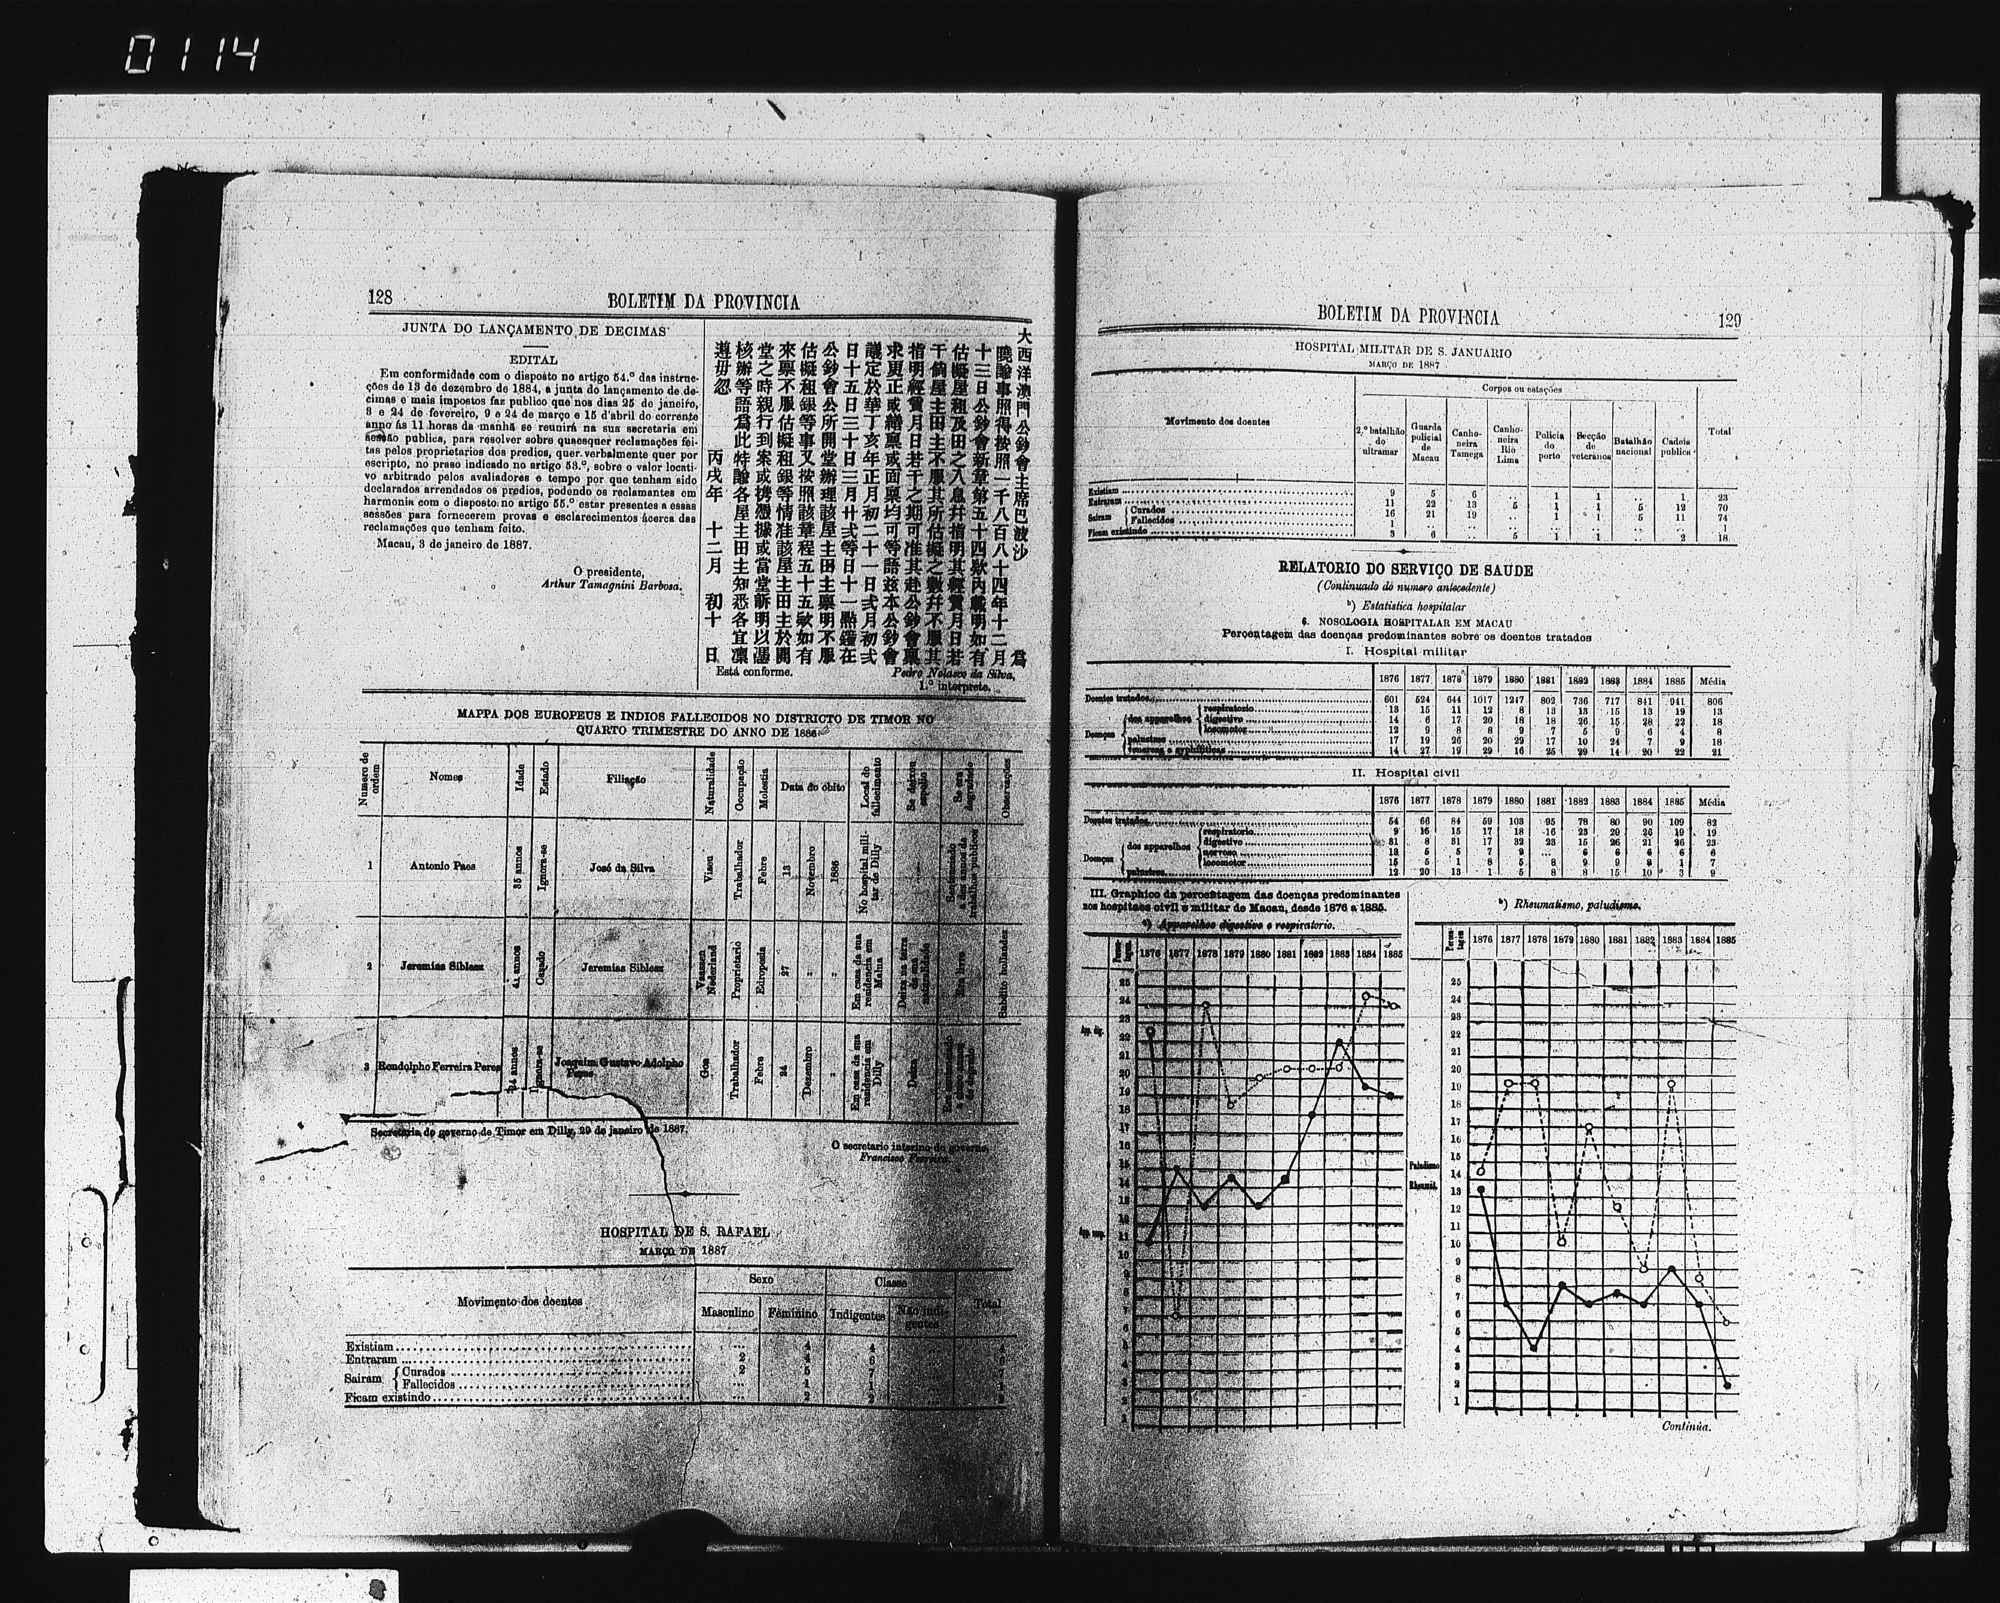 0114
128
BOLETIM DA PROVINCIA
JUNTA DO LANÇAMENTO DE DECIMAS
EDITAL
Em conformidade com o disposto no artigo 54.º das instruc-
ções de 13 de dezembro de 1884, a junta do lançamento de de-
cimas e mais impostos faz publico que nos dias 25 de janeiro,
8 e 24 de fevereiro, 9 e 24 de março e 15 d'abril do corrente
anno ás 11 horas da manhã se reunirá na sua secretaria em
sessão publica, para resolver sobre quaesquer reclamações fei-
tas pelos proprietarios dos predios, quer verbalmente quer por
escripto, no praso indicado no artigo 53.º, sobre o valor locati-
vo arbitrado pelos avaliadores e tempo por que tenham sido
declarados arrendados os predios, podendo os reclamantes em
harmonia com o disposto no artigo 55.º estar presentes a essas
sessões para fornecerem provas e esclarecimentos ácerca das
reclamações que tenham feito.
Macau, 3 de janeiro de 1887.
O presidente,
Arthur Tamagnini Barbosa.
大西洋澳門公鈔會主席巴波沙 爲
曉諭事照得按照一千八百八十四年十二月
十三日公鈔會新章第五十四欵內載明如有
估擬屋租及田之入息幷指明其經賃月日若
干倘屋主田主不服其所估擬之數幷不服其
指明經賃月日若干之期可准其赴公鈔會稟
求更正或繕稟或面稟均可等語茲本公鈔會
議定於華丁亥年正月初二十一日弍月初弍
日十五日三十日三月廿弍等日十一點鐘在
公鈔會公所開堂辦理該屋主田主稟明不服
估擬租銀等事又按照該章程五十五欵如有
來稟不服估擬租銀等情准該屋主田主於開
堂之時親行到案或携憑據或當堂訴明以憑
核辦等語爲此特諭各屋主田主知悉各宜凜
遵毋忽
丙戌年 十二月 初十 日
Está conforme.
Pedro Nolasco da Silva,
1.º interprete.
MAPPA DOS EUROPEUS E INDIOS FALLECIDOS NO DISTRICTO DE TIMOR NO
QUARTO TRIMESTRE DO ANNO DE 1886
Numero de ordem Nomes Idade Estado Filiação Naturalidade Occupação Molestia Data do obito Local do fallecimento Se deixou espolio Se era degradado Observações
1 Antonio Paes 35 annos Ignora-se José da Silva Viseu Trabalhador Febre 13 Novembro 1886 No hospital mili- tar de Dilly
2 Jeremias Siblesz annos Casado Jeremias Siblesz Nederland Proprietario 27 " " Em casa da sua residencia em Era livre Subdito hollandez
3 Rondolpho Ferreira Peres 24 annos Ignora-se Joaquim Gustavo Adolpho Peres Goa Trabalhador Febre 24 Dezembro " Em casa da sua residencia em Dilly
Secretaria do governo de Timor em Dilly, 29 de janeiro de 1887.
O secretario interino do governo,
Francisco Ferreira.
HOSPITAL DE S. RAFAEL
MARÇO DE 1887
Movimento dos doentes Sexo Classe Total
Masculino Feminino Indigentes Não indi- gentes
Existiam ... 4 4
Entraram 2 4 6
Sairam Curados 2 5 7
Fallecidos ... 1 1
Ficam existindo ... 2 2
BOLETIM DA PROVINCIA
129
HOSPITAL MILITAR DE S. JANUARIO
MARÇO DE 1887
Movimento dos doentes Corpos ou estações Total
2.º batalhão do ultramar Guarda policial de Macau Canho- neira Tamega Canho- neira Rio Lima Policia do porto Secção de veteranos Batalhão nacional Cadeia publica
Existiam 9 5 6 .. 1 1 .. 1 23
Entraram 11 22 13 5 1 1 5 12 70
Sairam Curados 16 21 19 .. 1 1 5 11 74
Fallecidos 1 .. .. .. .. .. .. .. 1
Ficam existindo 3 6 .. 5 1 1 .. 2 18
RELATORIO DO SERVIÇO DE SAUDE
(Continuado do numero antecedente)
b) Estatistica hospitalar
6. NOSOLOGIA HOSPITALAR EM MACAU
Percentagem das doenças predominantes sobre os doentes tratados
I. Hospital militar
1876 1877 1878 1879 1880 1881 1882 1883 1884 1885 Média
Doentes tratados 601 524 644 1017 1247 802 736 717 841 941 806
Doenças dos apparelhos respiratorio 13 15 11 12 8 13 13 15 13 19 13
digestivo 14 6 17 20 18 18 26 15 28 22 18
locomotor 12 9 8 8 9 7 5 9 6 4 8
palustres 17 19 26 20 29 17 10 24 7 9 18
venereas e syphiliticas 14 27 19 29 16 25 29 14 20 22 21
II. Hospital civil
1876 1877 1878 1879 1880 1881 1882 1883 1884 1885 Média
Doentes tratados 54 66 84 59 103 95 78 80 90 109 82
Doenças dos apparelhos respiratorio 9 16 15 17 18 16 23 29 26 19 19
digestivo 31 8 31 17 32 23 15 26 21 26 23
nervoso 5 5 7 9 ... 6 6 6 6 6
locomotor 15 5 1 8 5 8 9 9 8 1 7
palustres 12 20 13 1 5 8 8 15 10 3 9
III. Graphico da percentagem das doenças predominantes
nos hospitaes civil e militar de Macau, desde 1876 a 1885.
a) Apparelhos digestivo e respiratorio.
Percen- tagem 1876 1877 1878 1879 1880 1881 1882 1883 1884 1885
25
24
23
App. dig. 22
21
20
19
18
17
16
15
14
13
12
App. resp. 11
10
9
8
7
6
5
4
3
2
1
b) Rheumatismo, paludismo.
Percen- tagem 1876 1877 1878 1879 1880 1881 1882 1883 1884 1885
25
24
23
22
21
20
19
18
17
16
15
Paludismo 14
Rheumat. 13
12
11
10
9
8
7
6
5
4
3
2
1
Continúa.